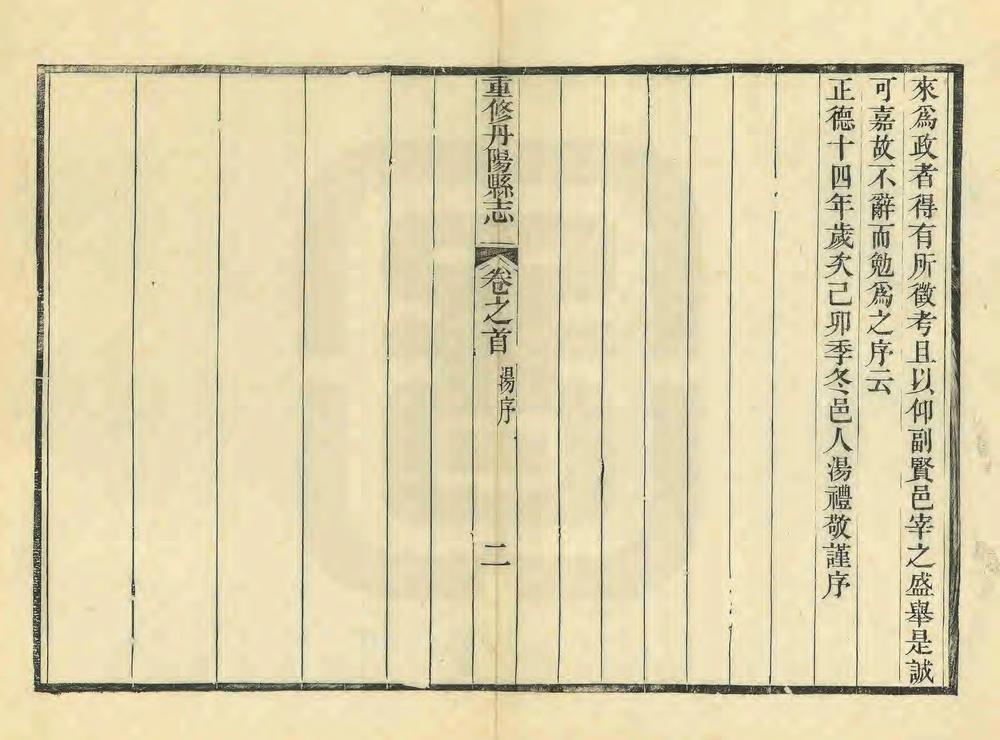 來爲政者得有所徵考且以仰副賢邑宰之盛舉是誠
可嘉故不辭而勉爲之序云
正德十四年歲次己卯季冬邑人湯禮敬謹序
重修丹陽縣志
卷之首
湯序
二